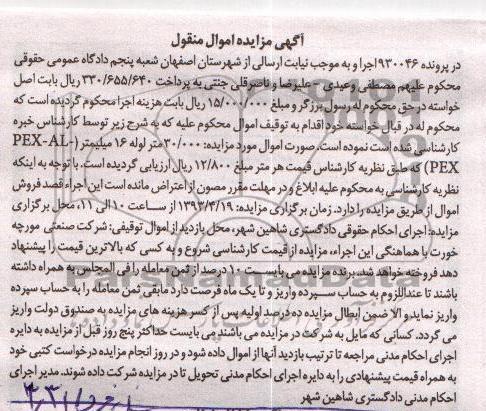 آگهی مزایده اموال منقول
در پرونده ۹۳۰۰۴۶ اجرا و به موجب نیابت ارسالی از شهرستان اصفهان شعبه پنجم دادگاه عمومی حقوقی
محکوم علیهم مصطفی وعیدی - علیرضا و ناصرقلی جنتی به پرداخت ۳۳۰/۶۵۵/۶۴۰ ریال بابت اصل
خواسته در حق محکوم له رسول برزگر و مبلغ ۱۵/۰۰۰/۰۰۰ ریال بابت هزینه اجرا محکوم گردیده است که
محکوم له در قبال خواسته خود اقدام به توقیف اموال محکوم علیه که به شرح زیر توسط کارشناس خبره
کارشناسی شده است نموده است. صورت اموال مورد مزایده: ۳۰/۰۰۰ متر لوله ۱۶ میلیمتر (PEX-AL-
PEX) که طبق نظریه کارشناس قیمت هر متر مبلغ ۱۲/۸۰۰ ریال ارزیابی گردیده است. با توجه به اینکه
نظریه کارشناسی به محکوم علیه ابلاغ و در مهلت مقرر مصون از اعتراض مانده است این اجراء قصد فروش
اموال از طریق مزایده را دارد. زمان برگزاری مزایده: ۱۳۹۳/۴/۱۹ از ساعت ۱۰ الی ۱۱، محل برگزاری
مزایده: اجرای احکام حقوقی دادگستری شاهین شهر، محل بازدید از اموال توقیفی: شرکت صنعتی مورچه
خورت با هماهنگی این اجراء، مزایده از قیمت کارشناسی شروع و به کسی که بالاترین قیمت را پیشنهاد
دهد فروخته خواهد شد. برنده مزایده می بایست ۱۰ درصد از ثمن معامله را فی المجلس به همراه داشته
باشند تا عنداللزوم به حساب سپرده واریز و تا یک ماه فرصت دارد مابقی ثمن معامله را به حساب سپرده
واریز نماید و الا ضمن ابطال مزایده ده درصد اولیه پس از کسر هزینه های مزایده به صندوق دولت واریز
می گردد. کسانی که مایل به شرکت در مزایده می باشند می بایست حداکثر پنج روز قبل از مزایده به دایره
اجرای احکام مدنی مراجعه تا ترتیب بازدید آنها از اموال داده شود و در روز انجام مزایده درخواست کتبی خود
به همراه قیمت پیشنهادی را به دایره اجرای احکام مدنی تحویل تا در مزایده شرکت داده شوند. مدیر اجرای
احکام مدنی دادگستری شاهین شهر